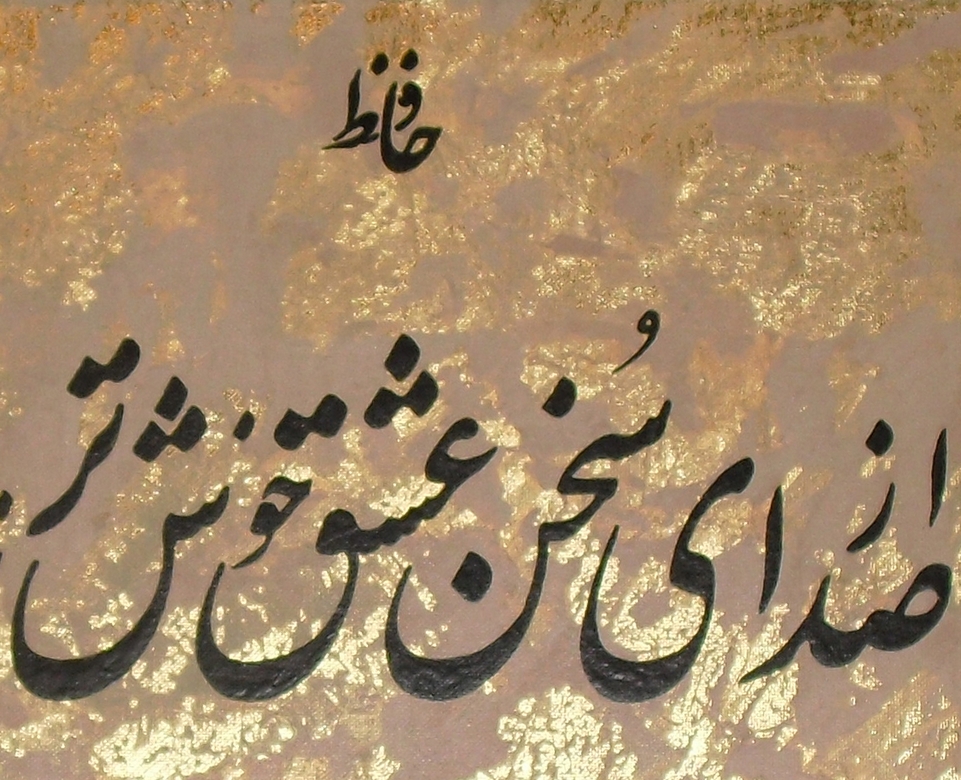 حافظ
از صدای سُخن عشق خوش‌تر